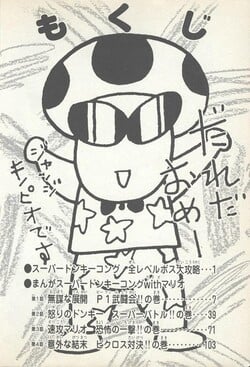 もくじ
だれだ
おめー
ジャッジ
キノピオです
●スーパードンキーコング/全レベルボス大攻略…1
●まんがスーパードンキーコングwithマリオ
第1話 無謀な展開 P1武闘会!!の巻…7
第2話 怒りのドンキー スーパーバトル!!の巻…39
第3話 速攻マリオ 恐怖の一撃!!の巻…71
第4話 意外な結末 ピクロス対決!!の巻…103